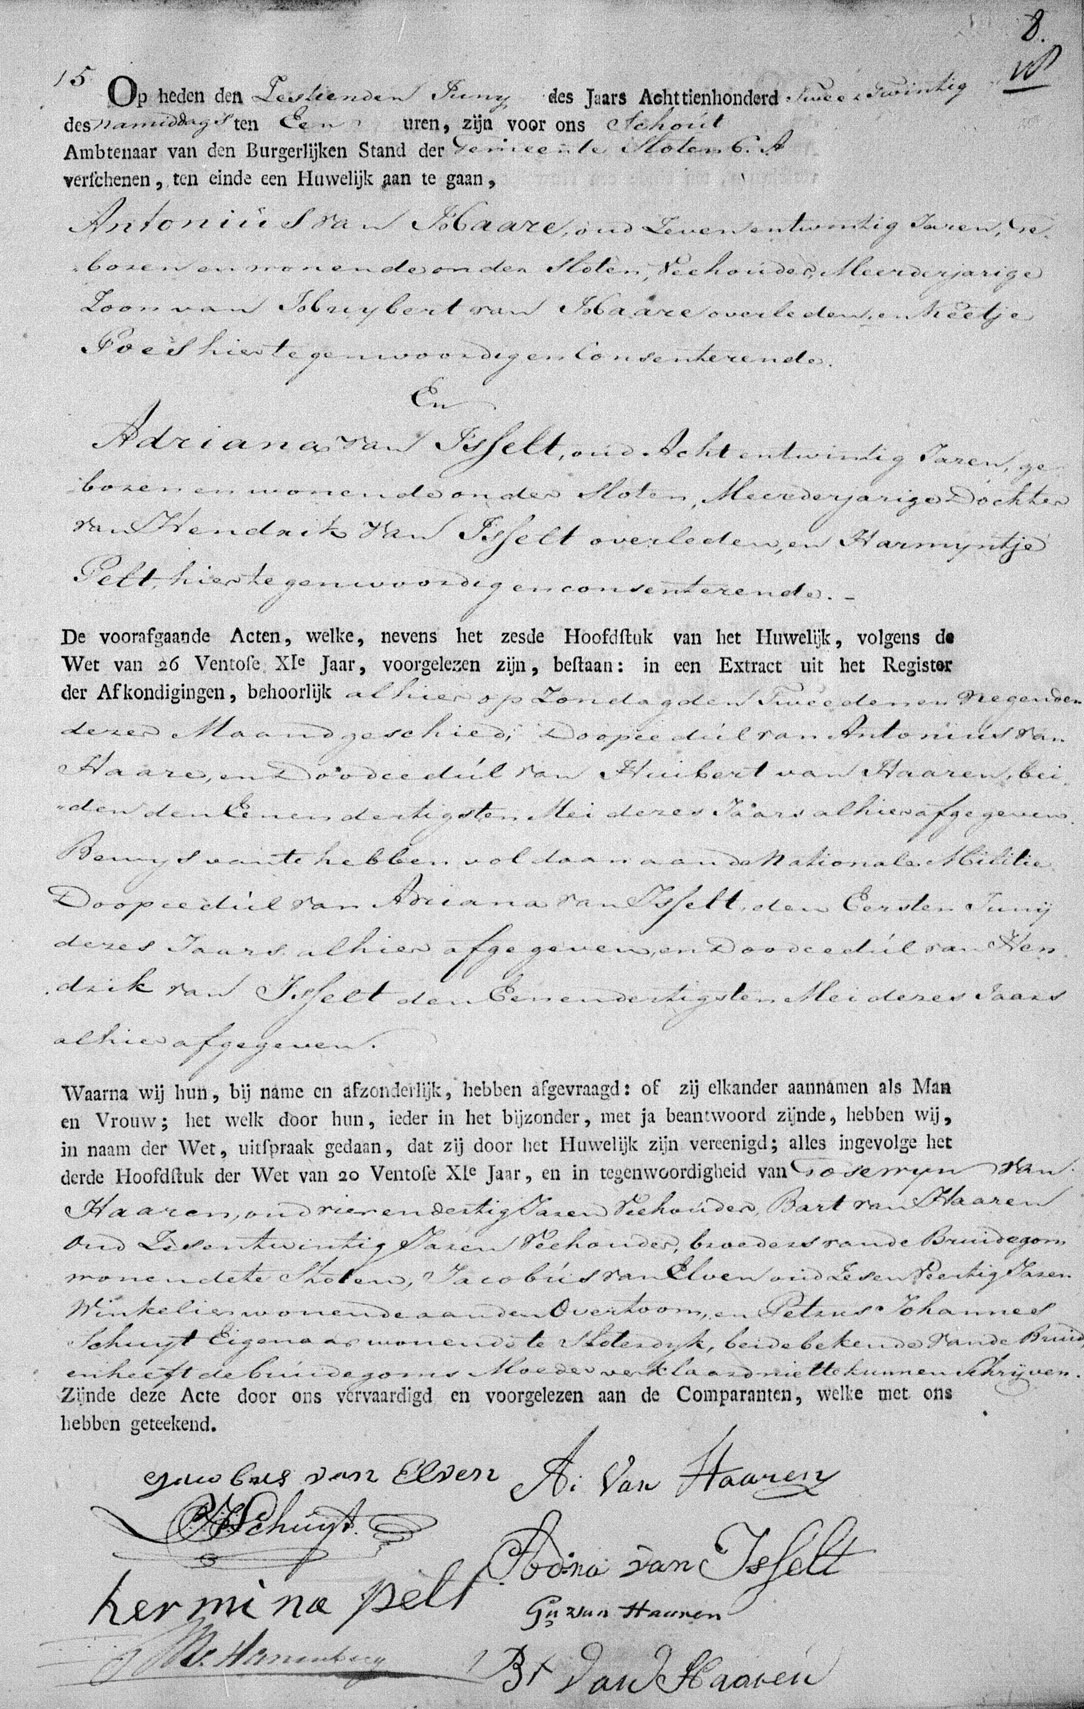 8.
15
Op heden den Zestienden Juny des Jaars Achttienhonderd Twee & Twintig
des namiddags ten Een uren, zijn voor ons Schout
Ambtenaar van den Burgerlijken Stand der Gemeente Sloten C. A
verschenen, ten einde een Huwelijk aan te gaan,
Antonius van Haare, oud Zevenentwintig Jaren, ge-
boren en wonende onder Sloten, Veehouder, Meerderjarige
Zoon van Huybert van Haare overleden, en Keetje
Foeis hier tegenwoordig en Consenterende.
En
Adriana van Isselt, oud Achtentwintig Jaren, ge-
boren en wonende onder Sloten, Meerderjarige Dochter
van Hendrik van Isselt overleden, en Harmyntje
Pelt, hier tegenwoordig en consenterende. -
De voorafgaande Acten, welke, nevens het zesde Hoofdstuk van het Huwelijk, volgens de
Wet van 26 Ventose XIe Jaar, voorgelezen zijn, bestaan: in een Extract uit het Register
der Afkondigingen, behoorlijk alhier op Zondag den Tweeden en Negenden
dezer Maand geschied; Doopcedúl van Antonius van
Haare, en Doodcedúl van Huibert van Haaren, bei-
den den Eenendertigsten Mei dezes Jaars alhier afgegeven.
Bewys van te hebben voldaan aan de Nationale Militie.
Doopcedúl van Adriana van Isselt, den Eersten Junij
dezes Jaars alhier afgegeven, en Doodcedúl van Hen-
drik van Isselt den Eenendertigsten Mei dezes Jaars
alhier afgegeven.
Waarna wij hun, bij name en afzonderlijk, hebben afgevraagd: of zij elkander aannamen als Man
en Vrouw; het welk door hun, ieder in het bijzonder, met ja beantwoord zijnde, hebben wij,
in naam der Wet, uitspraak gedaan, dat zij door het Huwelijk zijn vereenigd; alles ingevolge het
derde Hoofdstuk der Wet van 20 Ventose XIe Jaar, en in tegenwoordigheid van Goserwyn van
Haaren, oud vierendertig Jaren Veehouder, Bart van Haaren
Oud Zesentwintig Jaren Veehouder, broeders van de Bruidegom
wonende te Sloten, Jacobús van Elven oud Zesen Veertig Jaren
Winkelier wonende aan den Overtoom, en Petrus Johannes
Schuyt Eigenaar wonende te Sloterdyk, beide bekende van de Bruid,
en heeft de bruidegoms Moeder verklaard niet te kunnen Schrijven.
Zijnde deze Acte door ons vervaardigd en voorgelezen aan de Comparanten, welke met ons
hebben geteekend.
Jacobus van Elven A: Van Haaren
PJSchuyt.
Adna van Isselt
hermina pelt
Gn van Haaren
Bt Van Haaren